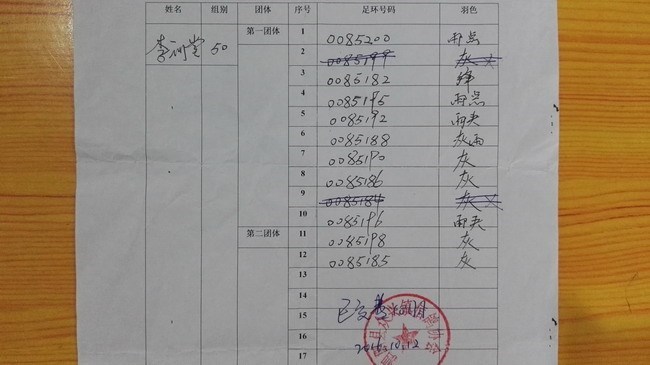 姓名 组别 团体 序号 足环号码 羽色
李 50 第一团体 1 0085200 雨点
2 0085199 灰
3 0085182 绛
4 0085195 雨点
5 0085192 雨夹
6 0085188 灰雨
7 0085170 灰
8 0085186 灰
9 0085184 灰
10 0085196 雨夹
第二团体 11 0085198 灰
12 0085185 灰
13
14
15
16 2016.10.12
17